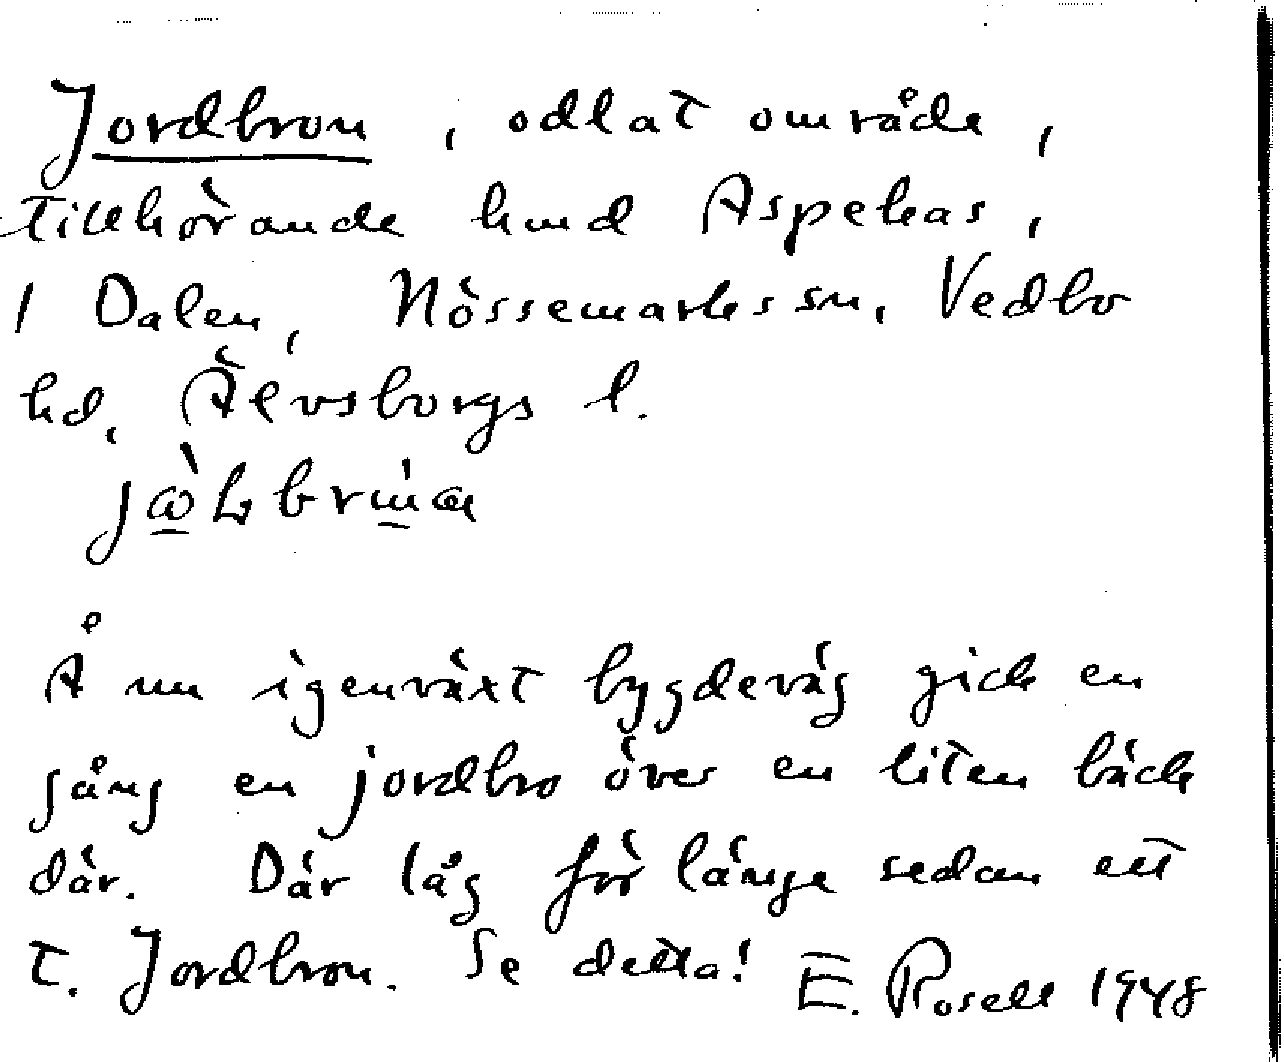 Jordbron, odlat område,
tillhörande hmd Aspekas,
1 Dalen, Nössemarks sn, Vedbo
hd, Älvsborgs l.
Å nu igenväxt bygdeväg gick en
gång en jordbro över en liten bäck
där. Där låg för länge sedan ett
t. Jordbron. Se detta! E. Rosell 1948